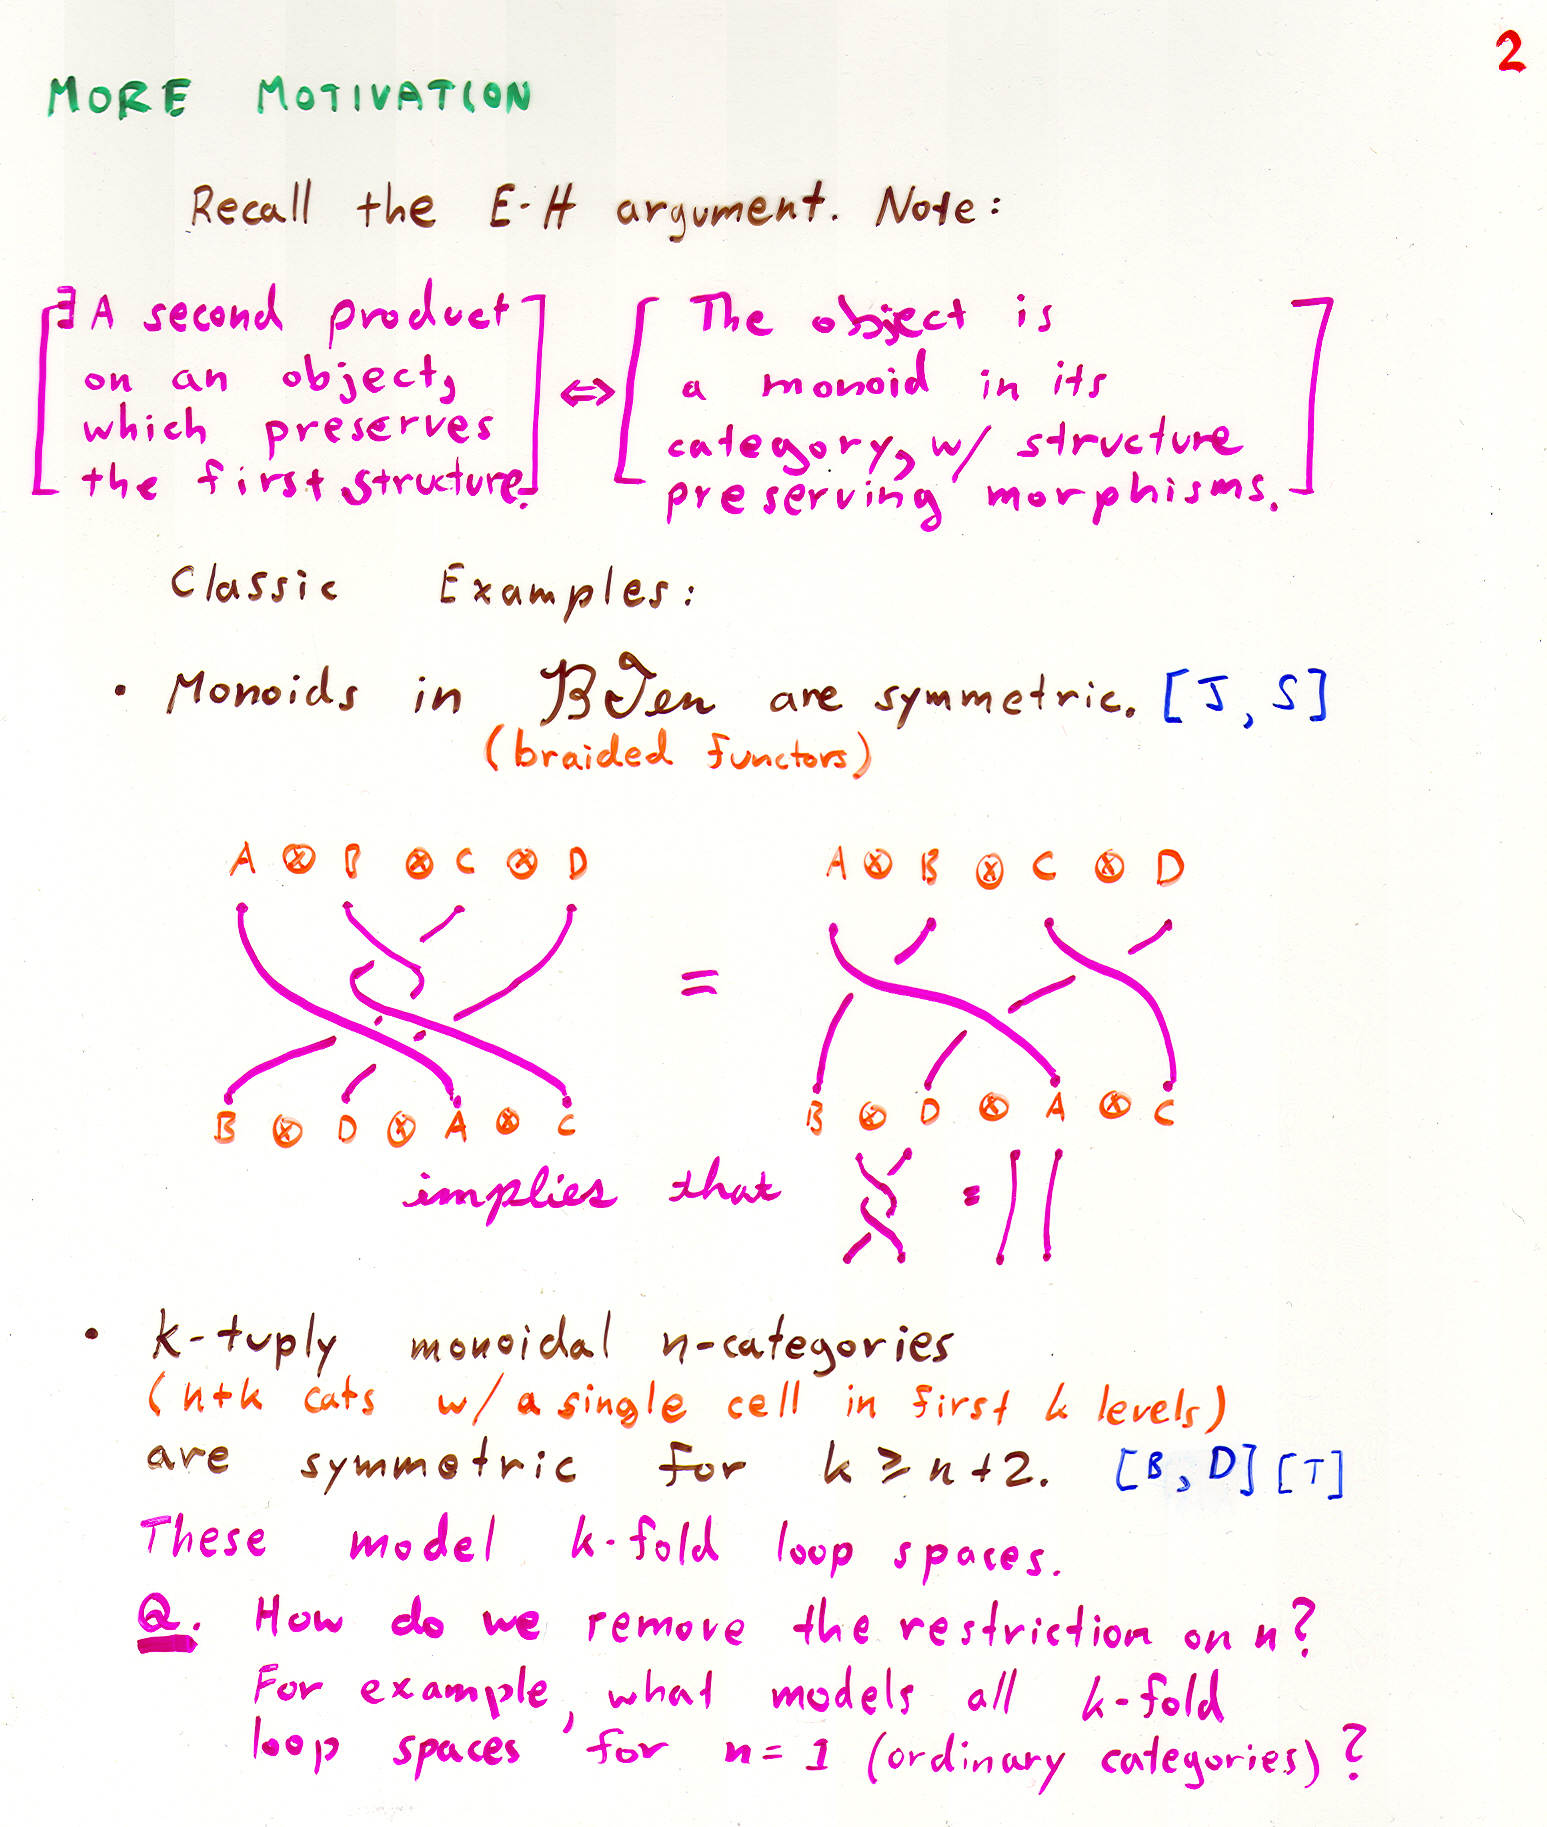 2
MORE MOTIVATION
Recall the E-H argument. Note:
∃ A second product
on an object,
which preserves
the first structure.
⇔
The object is
a monoid in its
category, w/ structure
preserving morphisms.
Classic Examples:
• Monoids in BTen are symmetric. [J, S]
(braided functors)
A ⊗ B ⊗ C ⊗ D
=
A ⊗ B ⊗ C ⊗ D
B ⊗ D ⊗ A ⊗ C
B ⊗ D ⊗ A ⊗ C
implies that =
• k-tuply monoidal n-categories
(n+k cats w/ a single cell in first k levels)
are symmetric for k ≥ n+2. [B, D] [T]
These model k-fold loop spaces.
Q. How do we remove the restriction on n?
For example, what models all k-fold
loop spaces for n = 1 (ordinary categories)?